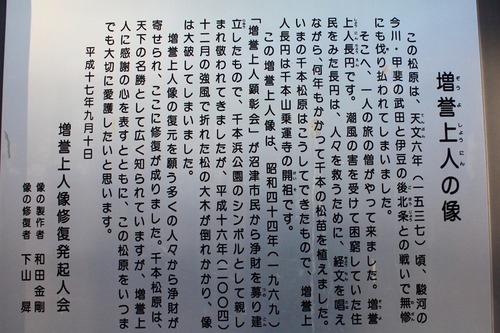 増誉上人の像
ぞうよしょうにん
この松原は、天文六年（一五三七）頃、駿河の
今川・甲斐の武田と伊豆の後北条との戦いで無惨
にも伐り払われてしまいました。
そこへ、一人の旅の僧がやって来ました。増誉
上人長円です。潮風の害を受けて困窮していた住
民をみた長円は、人々を救うために、経文を唱え
ながら、何年もかかって千本の松苗を植えました。
いまの千本松原はこうしてできたもので、増誉上
人長円は千本山乗運寺の開祖です。
この増誉上人像は、昭和四十四年（一九六九）
「増誉上人顕彰会」が沼津市民から浄財を募り建
立したもので、千本浜公園のシンボルとして親し
まれ敬われてきましたが、平成十六年（二〇〇四）
十二月の強風で折れた松の大木が倒れかかり、像
は大破してしまいました。
増誉上人像の復元を願う多くの人々から浄財が
寄せられ、ここに修復が成りました。千本松原は、
天下の名勝として広く知られていますが、増誉上
人に感謝の心を表すとともに、この松原をいつま
でも大切に愛護したいと思います。
平成十七年九月十日
増誉上人像修復発起人会
像の製作者 和田金剛
像の修復者 下山 昇